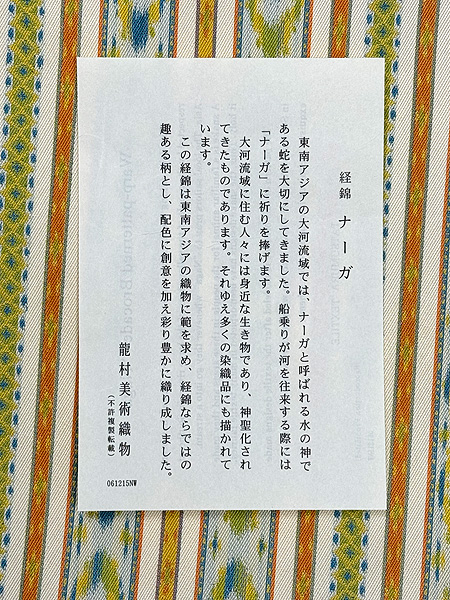 経錦 ナーガ
東南アジアの大河流域では、ナーガと呼ばれる水の神で
ある蛇を大切にしてきました。船乗りが河を往来する際には
「ナーガ」に祈りを捧げます。
大河流域に住む人々には身近な生き物であり、神聖化され
てきたものであります。それゆえ多くの染織品にも描かれて
います。
この経錦は東南アジアの織物に範を求め、経錦ならではの
趣ある柄とし、配色に創意を加え彩り豊かに織り成しました。
龍村美術織物
(不許複製転載)
061215NW